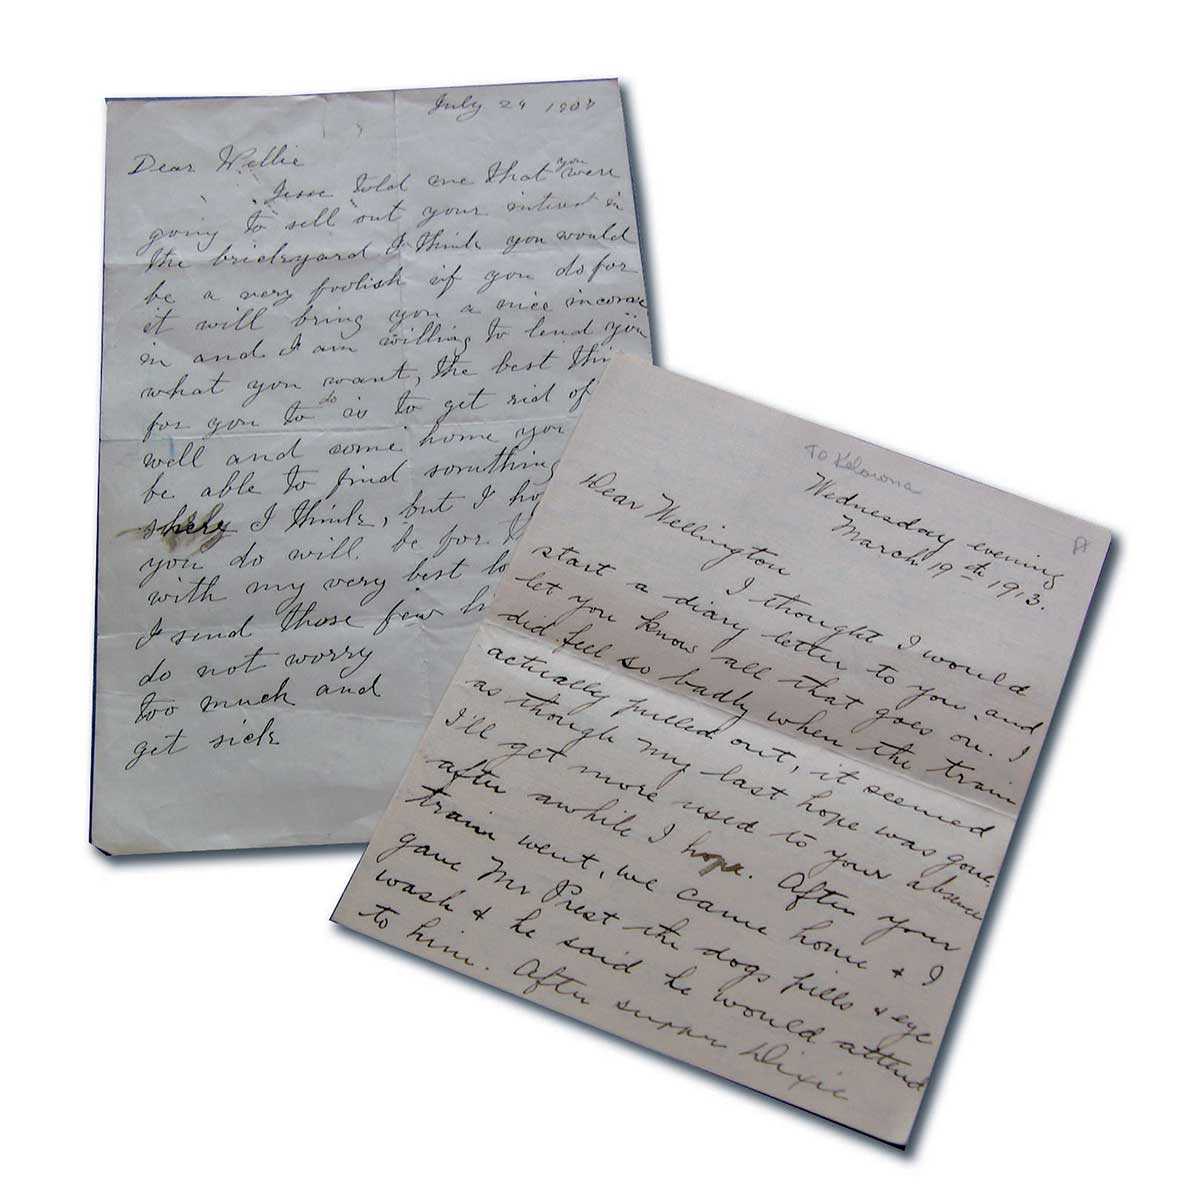 July 29 1908
Dear Wellie
Jesse told me that you were
going to sell out your interest in
the brickyard I think you would
be a very foolish if you do for
it will bring you a nice income
in and I am willing to lend you
what you want, the best thin
for you to do is to get rid of
well and come home you
be able to find somthing
here I think, but I ho
you do will be for t
with my very best lo
I send those few
do not worry
too much and
get sick
To Kelowna
Wednesday evening
March 19th 1913.
Dear Wellington
I thought I would
start a diary letter to you, and
let you know all that goes on. I
did feel so badly when the train
actually pulled out, it seemed
as though my last hope was gone.
I'll get more used to your absence
after awhile I hope. After your
train went, we came home & I
gave Mr Prest the dogs pills & eye
wash & he said he would attend
to him. After supper Dixie